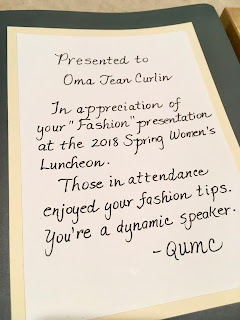 Presented to
Oma Jean Curlin
In appreciation of
your "Fashion" presentation
at the 2018 Spring Women's
Luncheon.
Those in attendance
enjoyed your fashion tips.
You're a dynamic speaker.
- QUMC